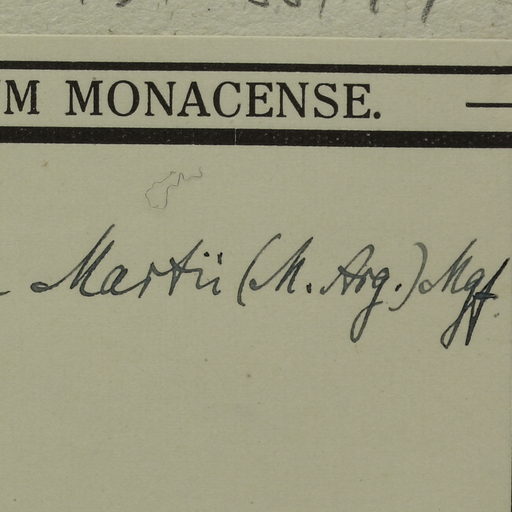 UM MONACENSE.
Martii (M. Arg.) Mgf.